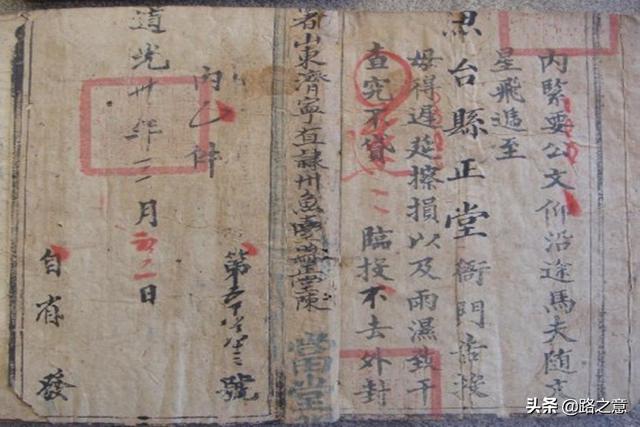 內緊要公文仰沿途馬夫随
星飛遞至
台縣正堂衙門告投
毋得遲延擦損以及雨濕致干
查究不貸 臨投不去外封
山東濟寧直隸州魚堂陳
當堂
第號
內乙件
道光卅年三月日
自發
头条 @路之意